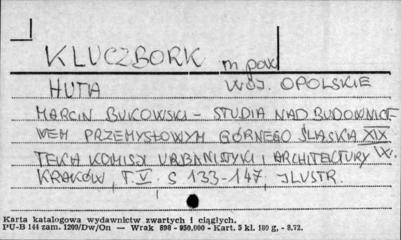 KLUCZBORK m. pow.
HUTA WOJ. OPOLSKIE
MARCIN BUKOWSKI - STUDIA NAD BUDOWNICT
WEM PRZEMYSŁOWYM GÓRNEGO ŚLĄSKA XIX
TEKA KOMISJI URBANISTYKI I ARCHITEKTURY W.
KRAKÓW, T V. S 133-147, ILUSTR.
Karta katalogowa wydawnictw zwartych i ciągłych.
PU-B 144 zam. 1209/Dw/On — Wrak 898 - 950.000 - Kart. 5 kl. 180 g, - 8.72.